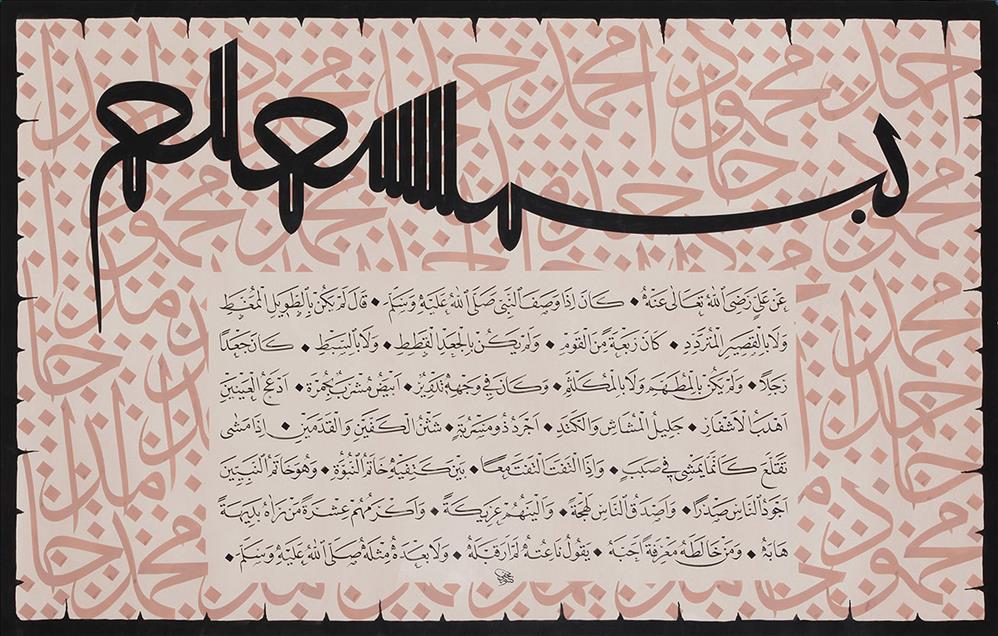 بسم الله
عَنْ عَلِيٍّ رَضِيَ اللهُ تَعَالَى عَنْهُ ◆ كَانَ اِذَا وَصَفَ النَّبِيَّ صَلَّى اللهُ عَلَيْهِ وَسَلَّمَ ◆ قَالَ لَمْ يَكُنْ بِالطَّوِيلِ الْمُمَّغِطِ
وَلَا بِالْقَصِيرِ الْمُتَرَدِّدِ ◆ كَانَ رَبْعَةً مِنَ الْقَوْمِ ◆ وَلَمْ يَكُنْ بِالْجَعْدِ الْقَطَطِ ◆ وَلَا بِالسَّبْطِ ◆ كَانَ جَعْدًا
رَجِلًا ◆ وَلَمْ يَكُنْ بِالْمُطَهَّمِ وَلَا بِالْمُكَلْثَمِ ◆ وَكَانَ فِي وَجْهِهِ تَدْوِيرٌ ◆ اَبْيَضُ مُشْرَبٌ بِحُمْرَةٍ ◆ اَدْعَجُ الْعَيْنَيْنِ
اَهْدَبُ الْاَشْفَارِ ◆ جَلِيلُ الْمُشَاشِ وَالْكَتَدِ ◆ اَجْرَدُ ذُو مَسْرُبَةٍ ◆ شَثْنُ الْكَفَّيْنِ وَالْقَدَمَيْنِ ◆ اِذَا مَشَى
تَقَلَّعَ كَاَنَّمَا يَمْشِي فِي صَبَبٍ ◆ وَاِذَا الْتَفَتَ الْتَفَتَ مَعًا ◆ بَيْنَ كَتِفَيْهِ خَاتَمُ النُّبُوَّةِ ◆ وَهُوَ خَاتَمُ النَّبِيِّينَ
اَجْوَدُ النَّاسِ صَدْرًا ◆ وَاَصْدَقُ النَّاسِ لَهْجَةً ◆ وَاَلْيَنُهُمْ عَرِيكَةً ◆ وَاَكْرَمُهُمْ عِشْرَةً مَنْ رَاٰهُ بَدِيهَةً
هَابَهُ ◆ وَمَنْ خَالَطَهُ مَعْرِفَةً اَحَبَّهُ ◆ يَقُولُ نَاعِتُهُ لَمْ اَرَ قَبْلَهُ ◆ وَلَا بَعْدَهُ مِثْلَهُ صَلَّى اللهُ عَلَيْهِ وَسَلَّمَ ◆